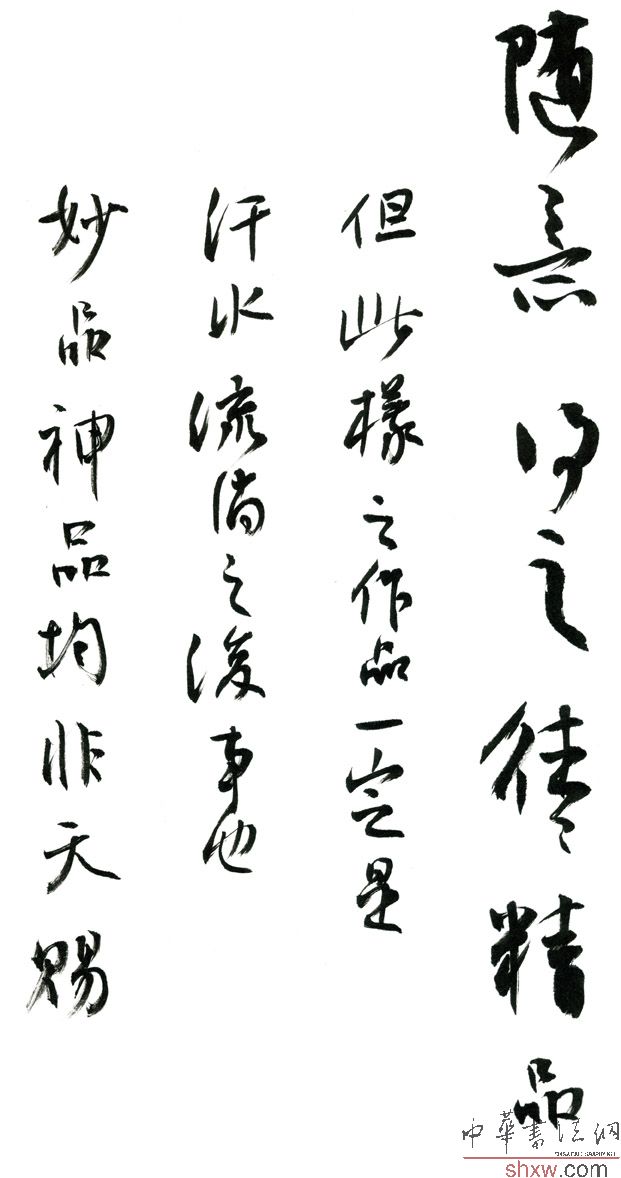 随意得之往往精品
但此樣之作品一定是
汗水流淌之後事也
妙品神品均非天賜
中華書法網
shxw.com